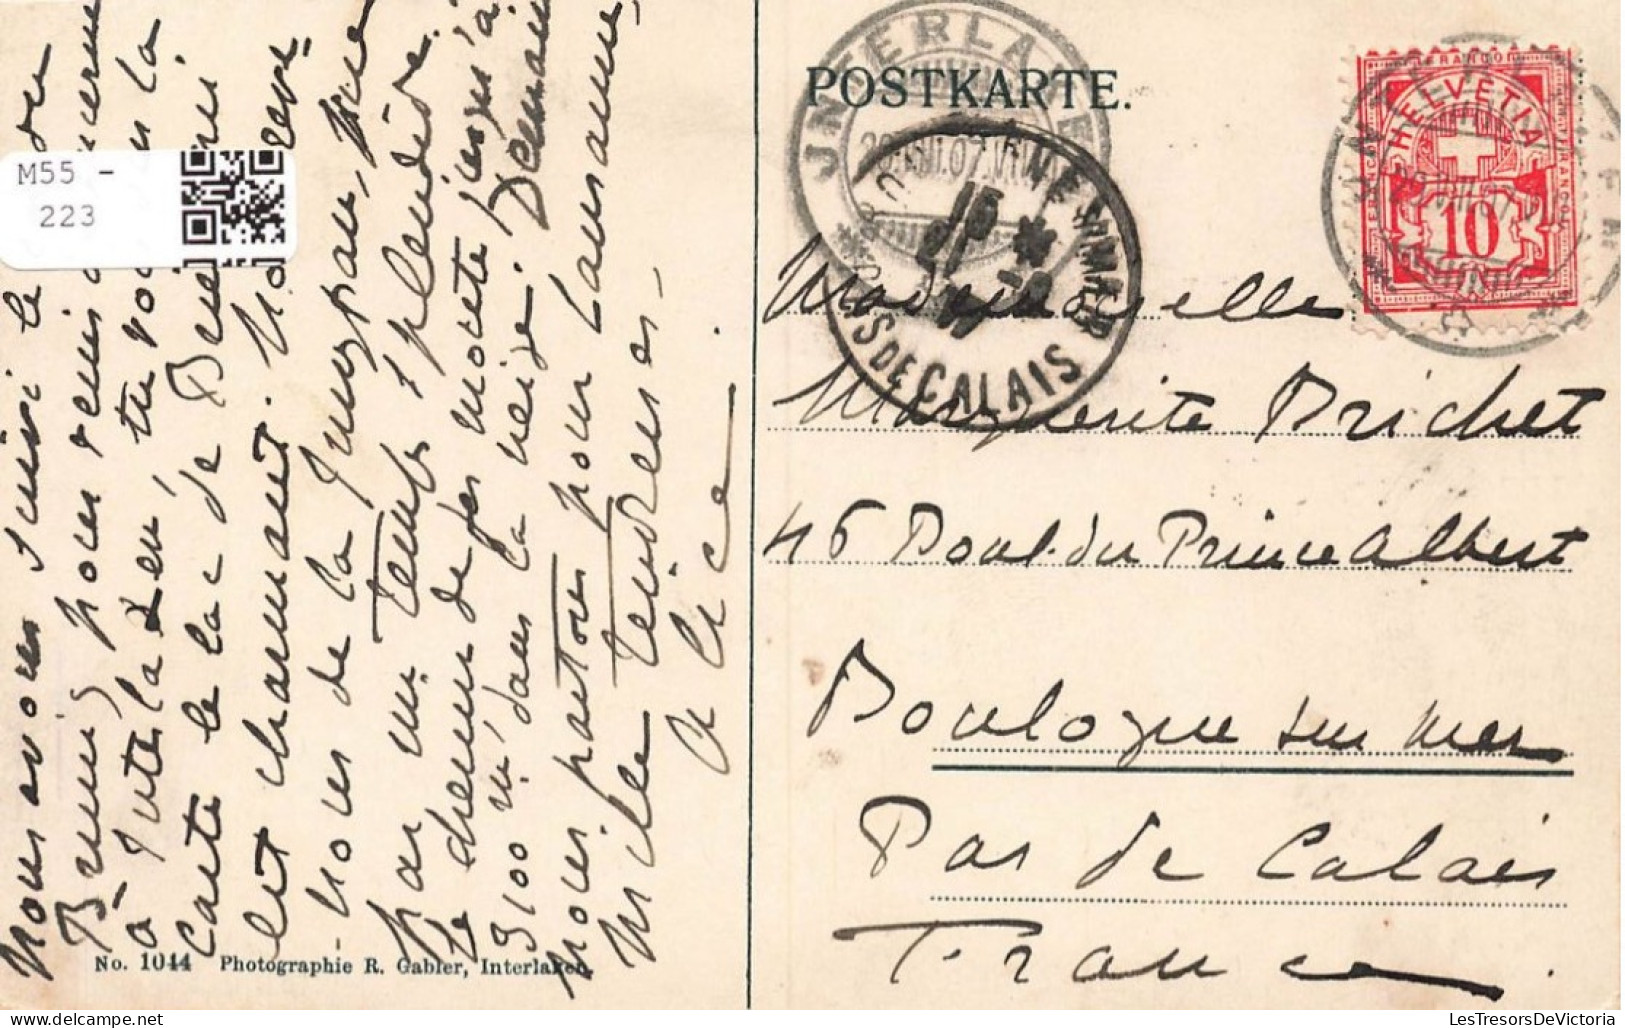 Nous avons suivi le
Brunig pour venir
à Interlaken, tu vois la
carte le lac de
est charmant. Nous
nous de la Jungfrau,
par un temps splendide.
Le chemin de fer monte jusqu'à
3100 m dans la neige. Demain
nous partons pour Lausanne,
Mille tendresses
Alice.
No. 1044 Photographie R. Gabler, Interlaken.
M55 -
223
POSTKARTE.
INTERLAKEN
BOULOGNE-S-MER
PAS DE CALAIS
FRANCO
HELVETIA
10
Mademoiselle
Marguerite Brichet
46 Boul. du Prince Albert
Boulogne sur mer
Pas de Calais
France.
LesTresorsDeVictoria